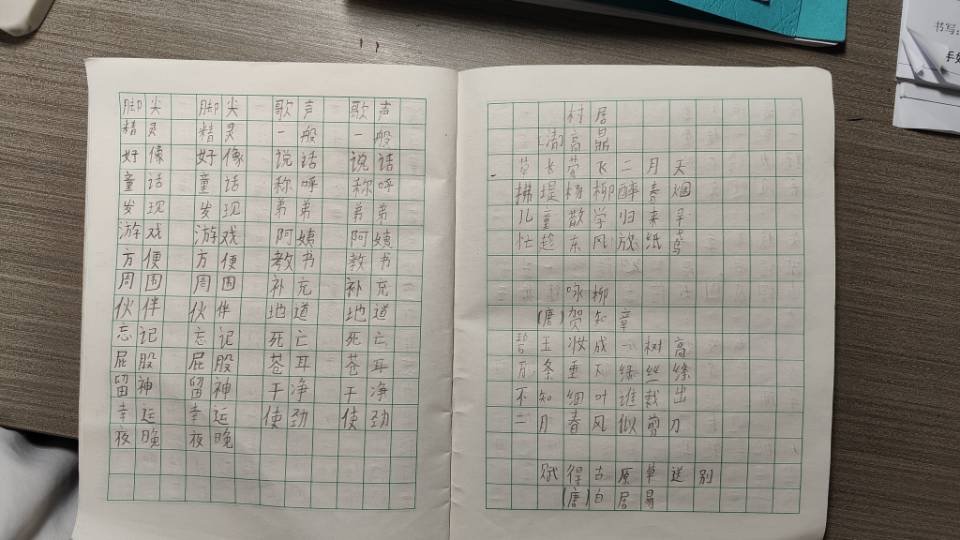 脚尖 脚尖 歌声 歌声
精灵 精灵 一般 一般
好像 好像 说话 说话
童话 童话 称呼 称呼
发现 发现 弟弟 弟弟
游戏 游戏 阿姨 阿姨
方便 方便 教书 教书
周围 周围 补充 补充
伙伴 伙伴 地道 地道
忘记 忘记 死亡 死亡
屁股 屁股 苍耳 苍耳
留神 留神 干净 干净
幸运 幸运 使劲 使劲
夜晚 夜晚
村居
(清)高鼎
草长莺飞二月天
拂堤杨柳醉春烟
儿童散学归来早
忙趁东风放纸鸢
咏柳
(唐)贺知章
碧玉妆成一树高
万条垂下绿丝绦
不知细叶谁裁出
二月春风似剪刀
赋得古原草送别
(唐)白居易
书写: